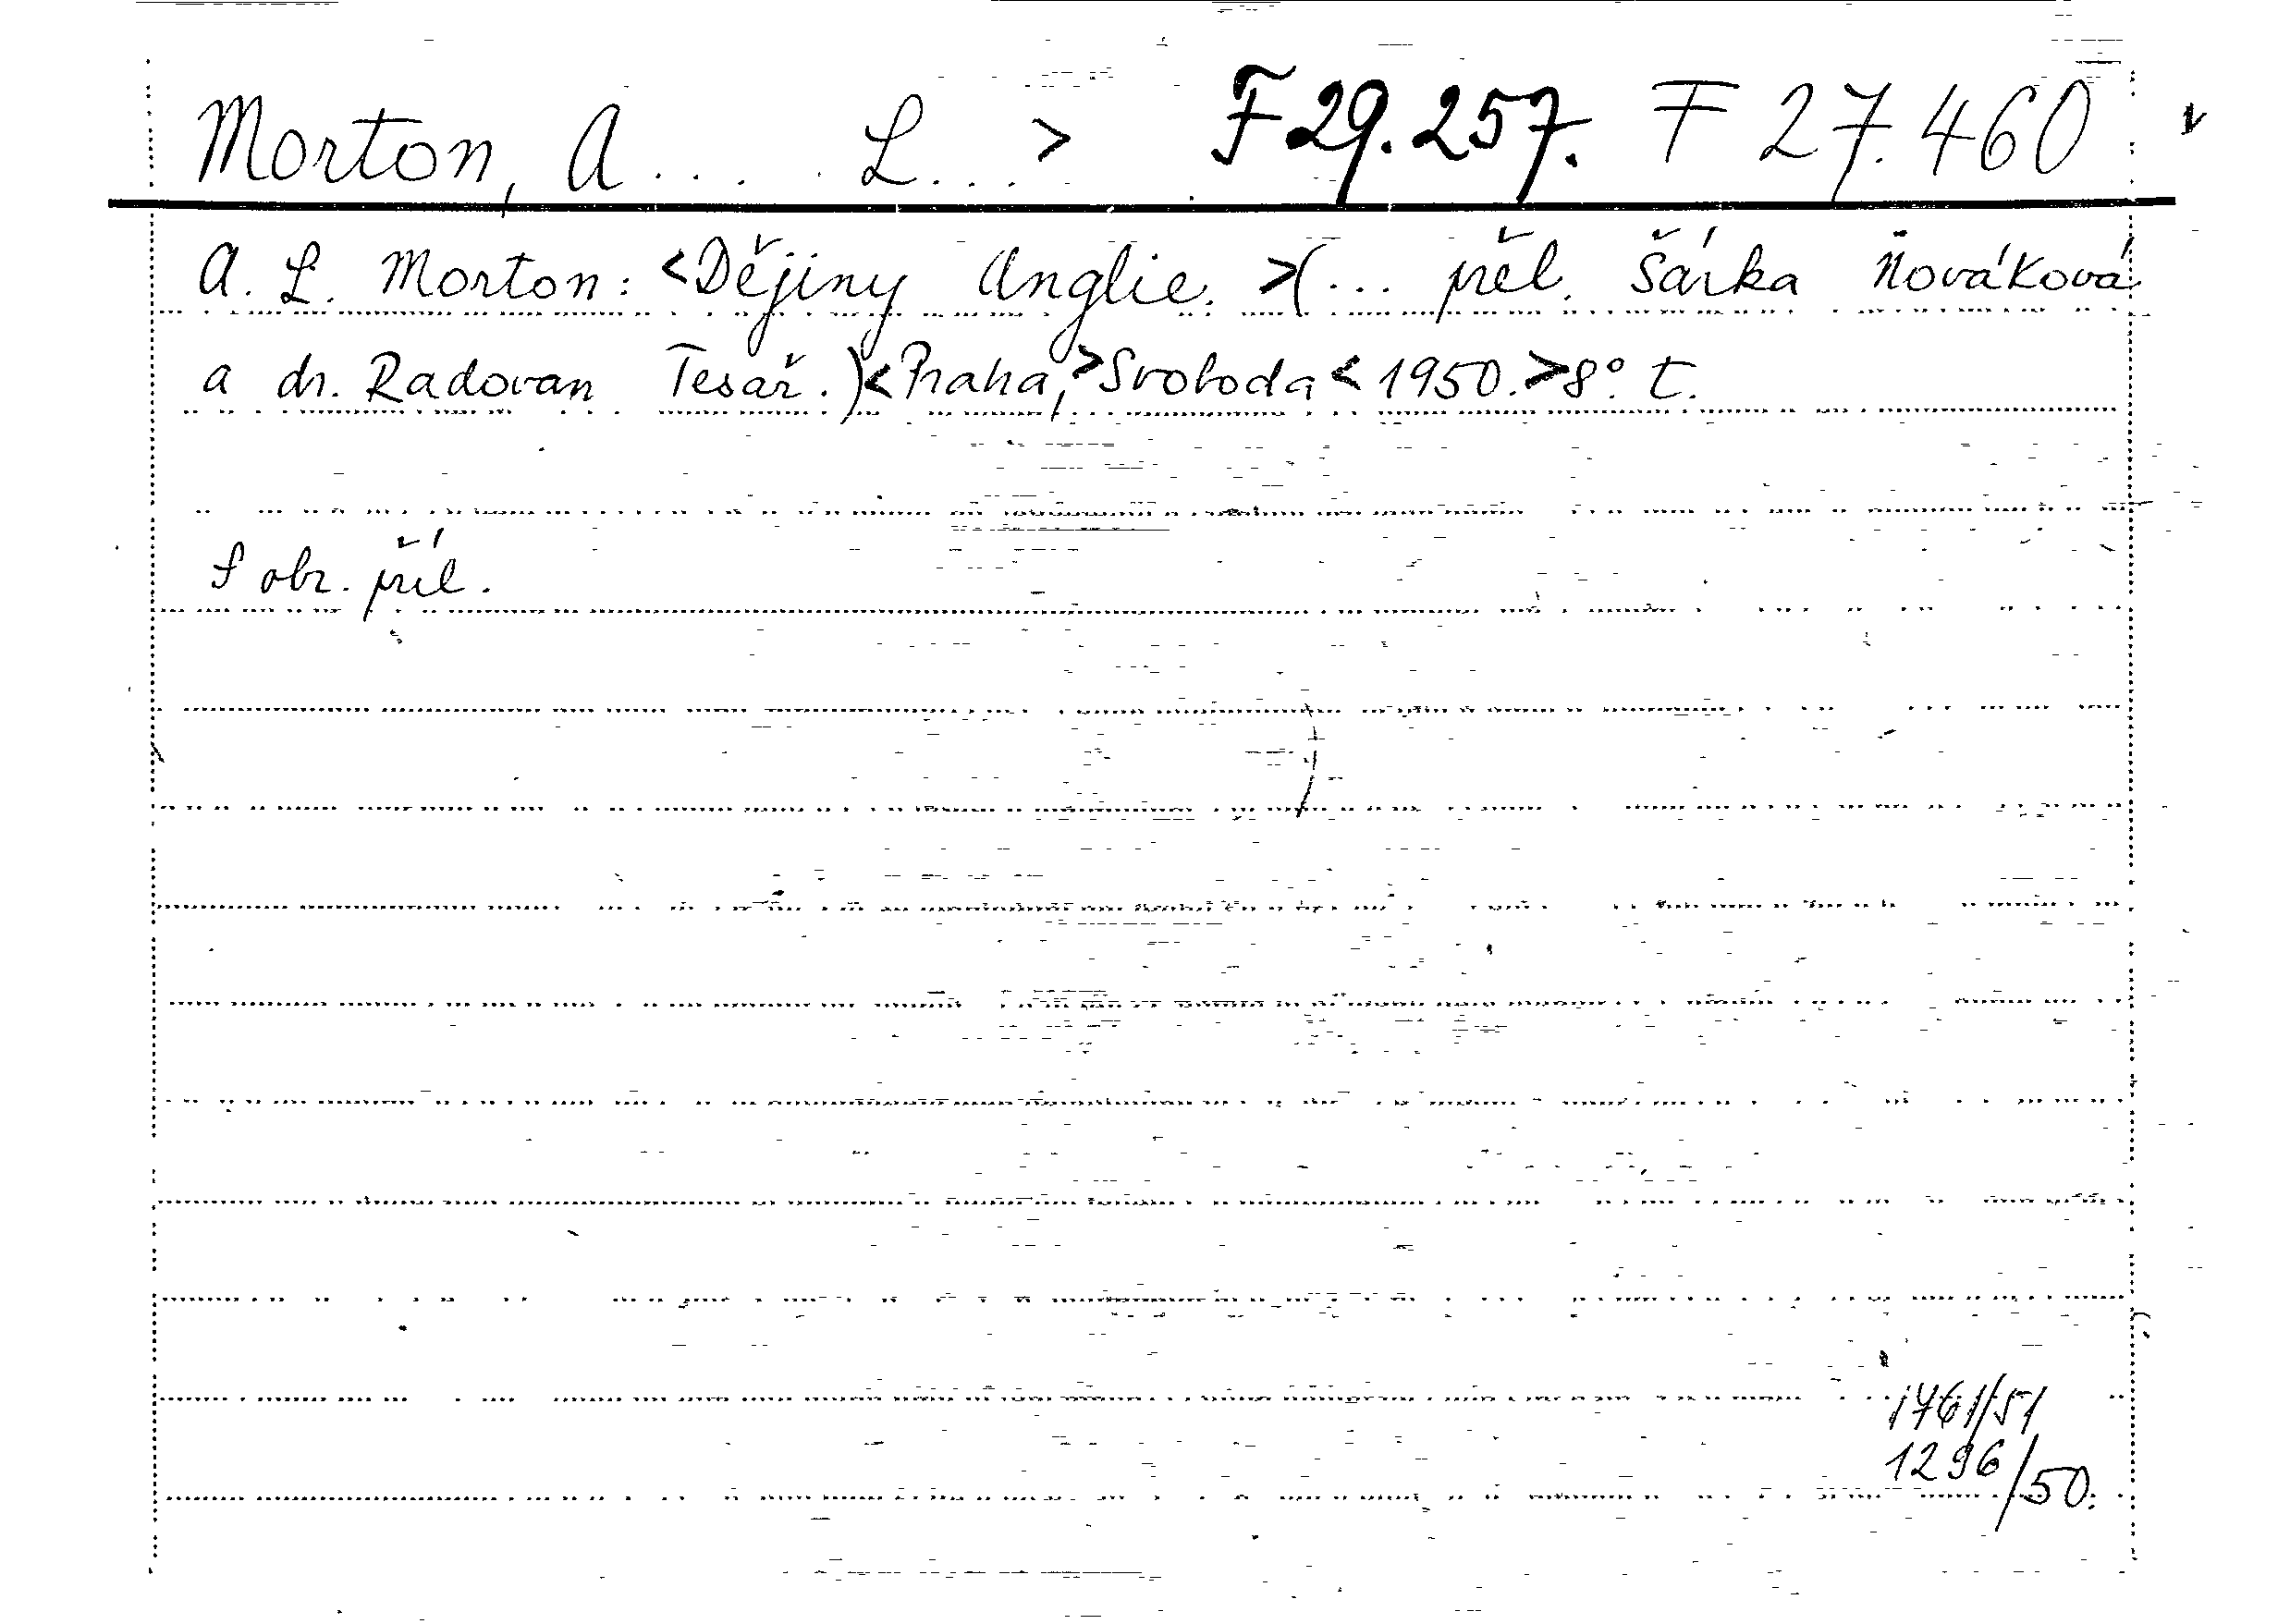 Morton, A... . L... > F 29.257. F 27.460
A. L. Morton: <Dějiny Anglie. >(... přel. Šárka Nováková
a dr. Radovan Tesař.)<Praha,>Svoboda<1950.>8°. t.
S obr. příl.
1761/51
1296/50.